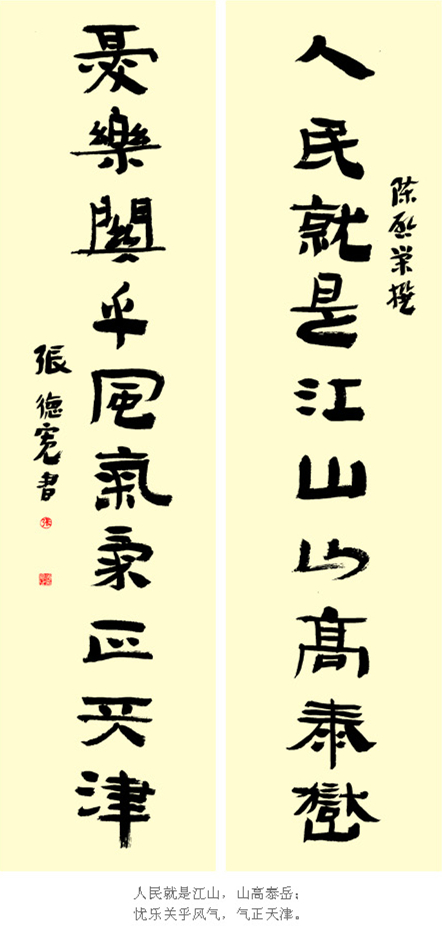 陈啟荣撰
人民就是江山山高泰嶽
憂樂關乎風氣氣正天津
張德寬書
人民就是江山，山高泰岳；
忧乐关乎风气，气正天津。